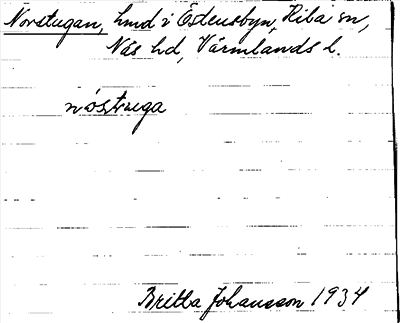 Norstugan, hmd i Edensbyn, Kila sn,
Näs hd, Värmlands l.
nòstuga
Britta Johansson 1934